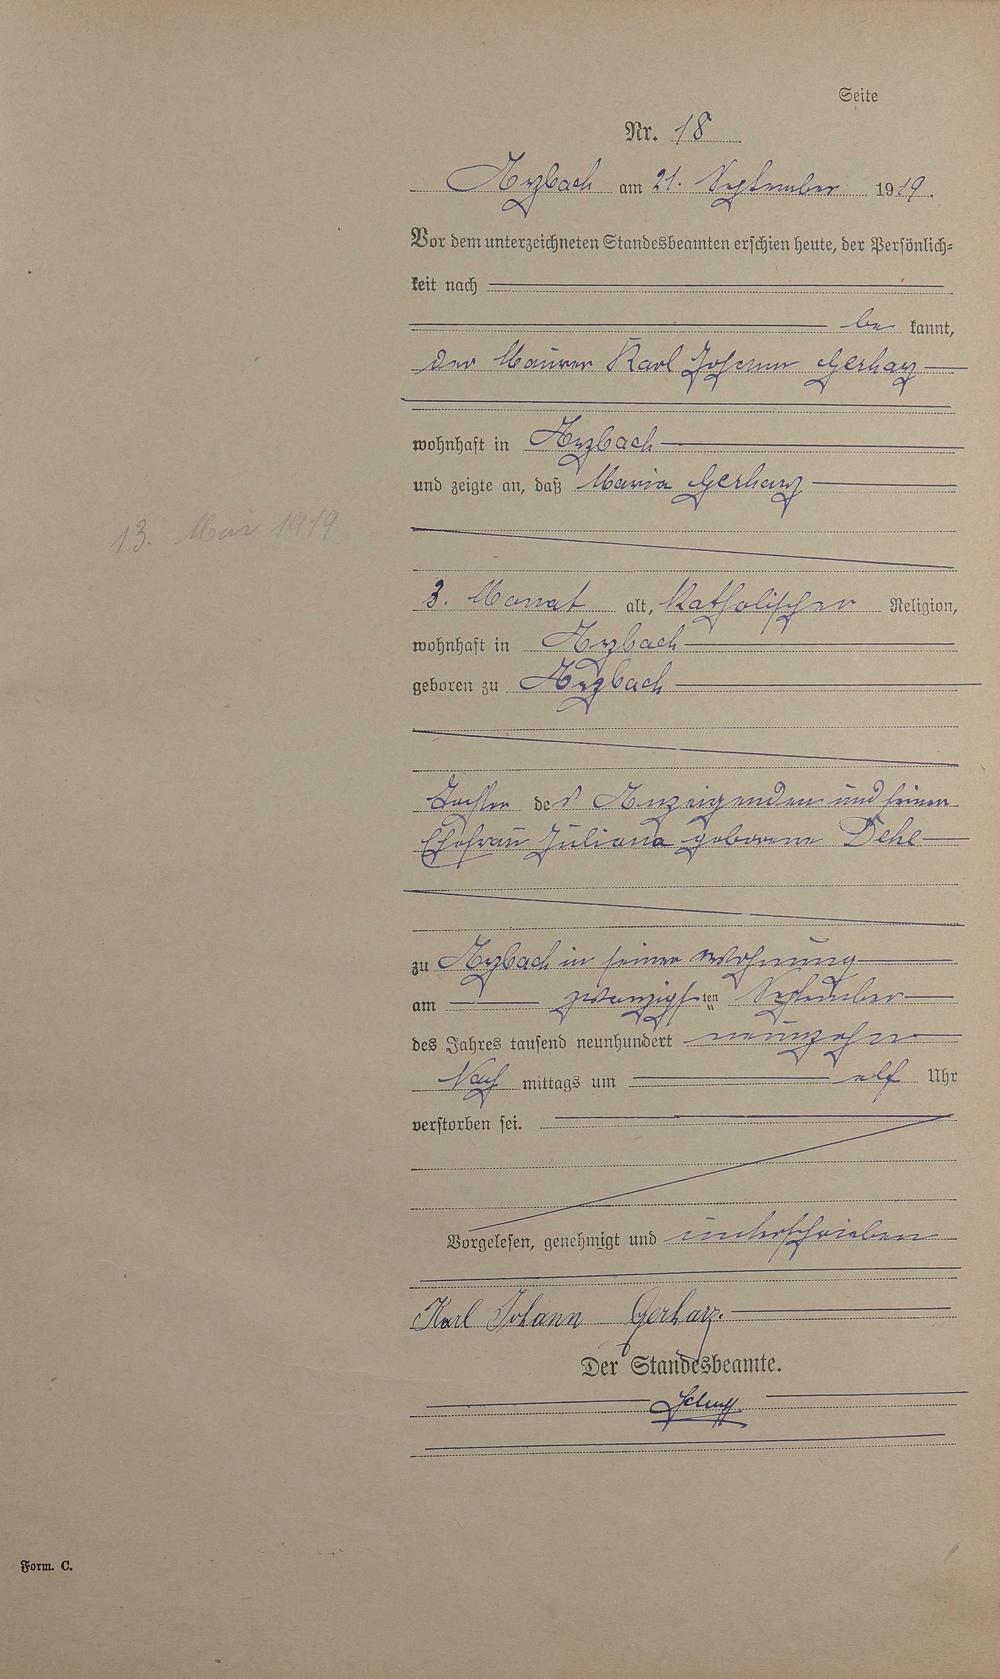 Seite
Nr. 18
Arzbach am 21. September 1919.
Vor dem unterzeichneten Standesbeamten erschien heute, der Persönlich-
keit nach
be kannt,
der Maurer Karl Johann Gerharz
wohnhaft in Arzbach
und zeigte an, daß Maria Gerharz
13. Mar 1919
3. Monat alt, katholischer Religion,
wohnhaft in Arzbach
geboren zu Arzbach
Tochter des Anzeigenden und seiner
Ehefrau Juliana geborene Dehe
zu Arzbach in seiner Wohnung
am zwanzigsten September
des Jahres tausend neunhundert neunzehn
Nach mittags um elf Uhr
verstorben sei.
Vorgelesen, genehmigt und unterschrieben
Karl Johann Gerharz.
Der Standesbeamte.
Form. C.